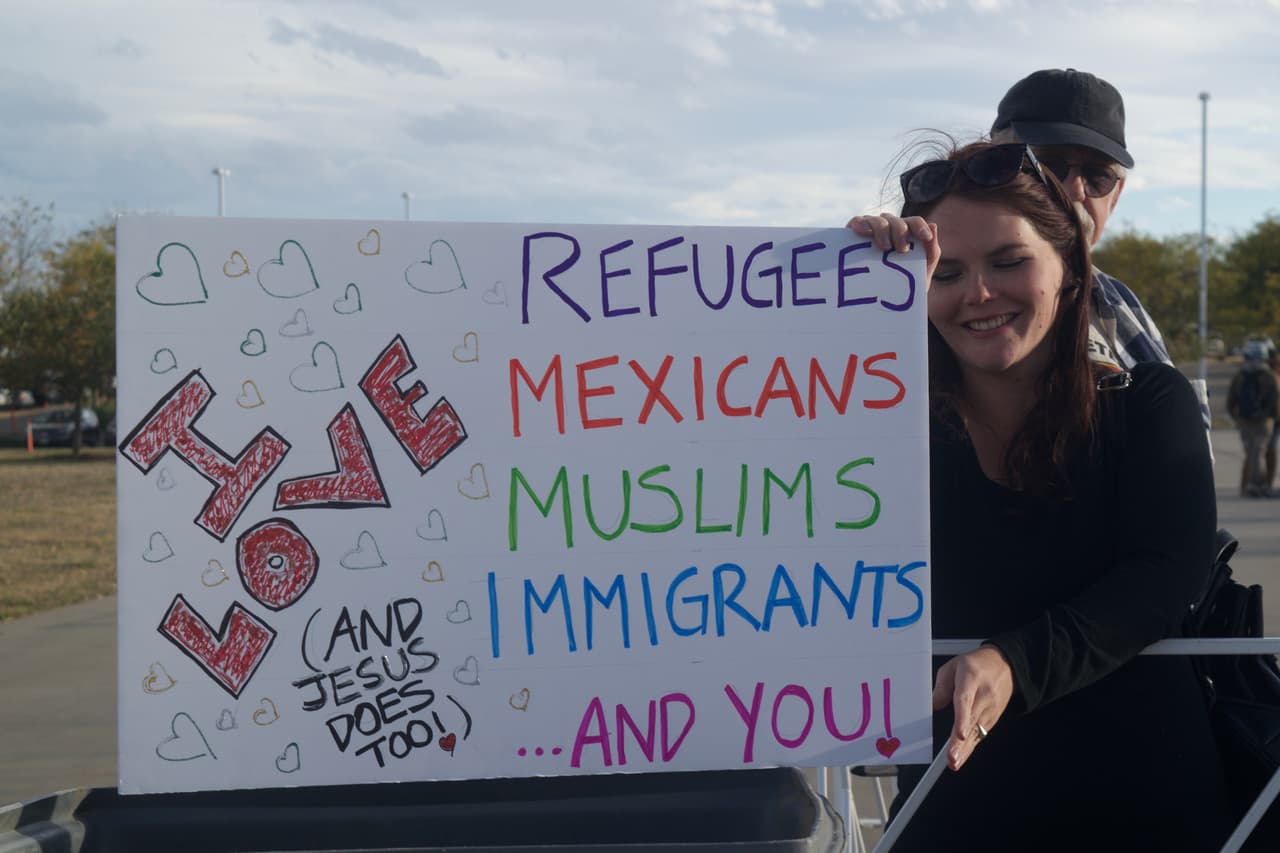 I
LOVE
(AND
JESUS
DOES
TOO!)
REFUGEES
MEXICANS
MUSLIMS
IMMIGRANTS
...AND YOU!